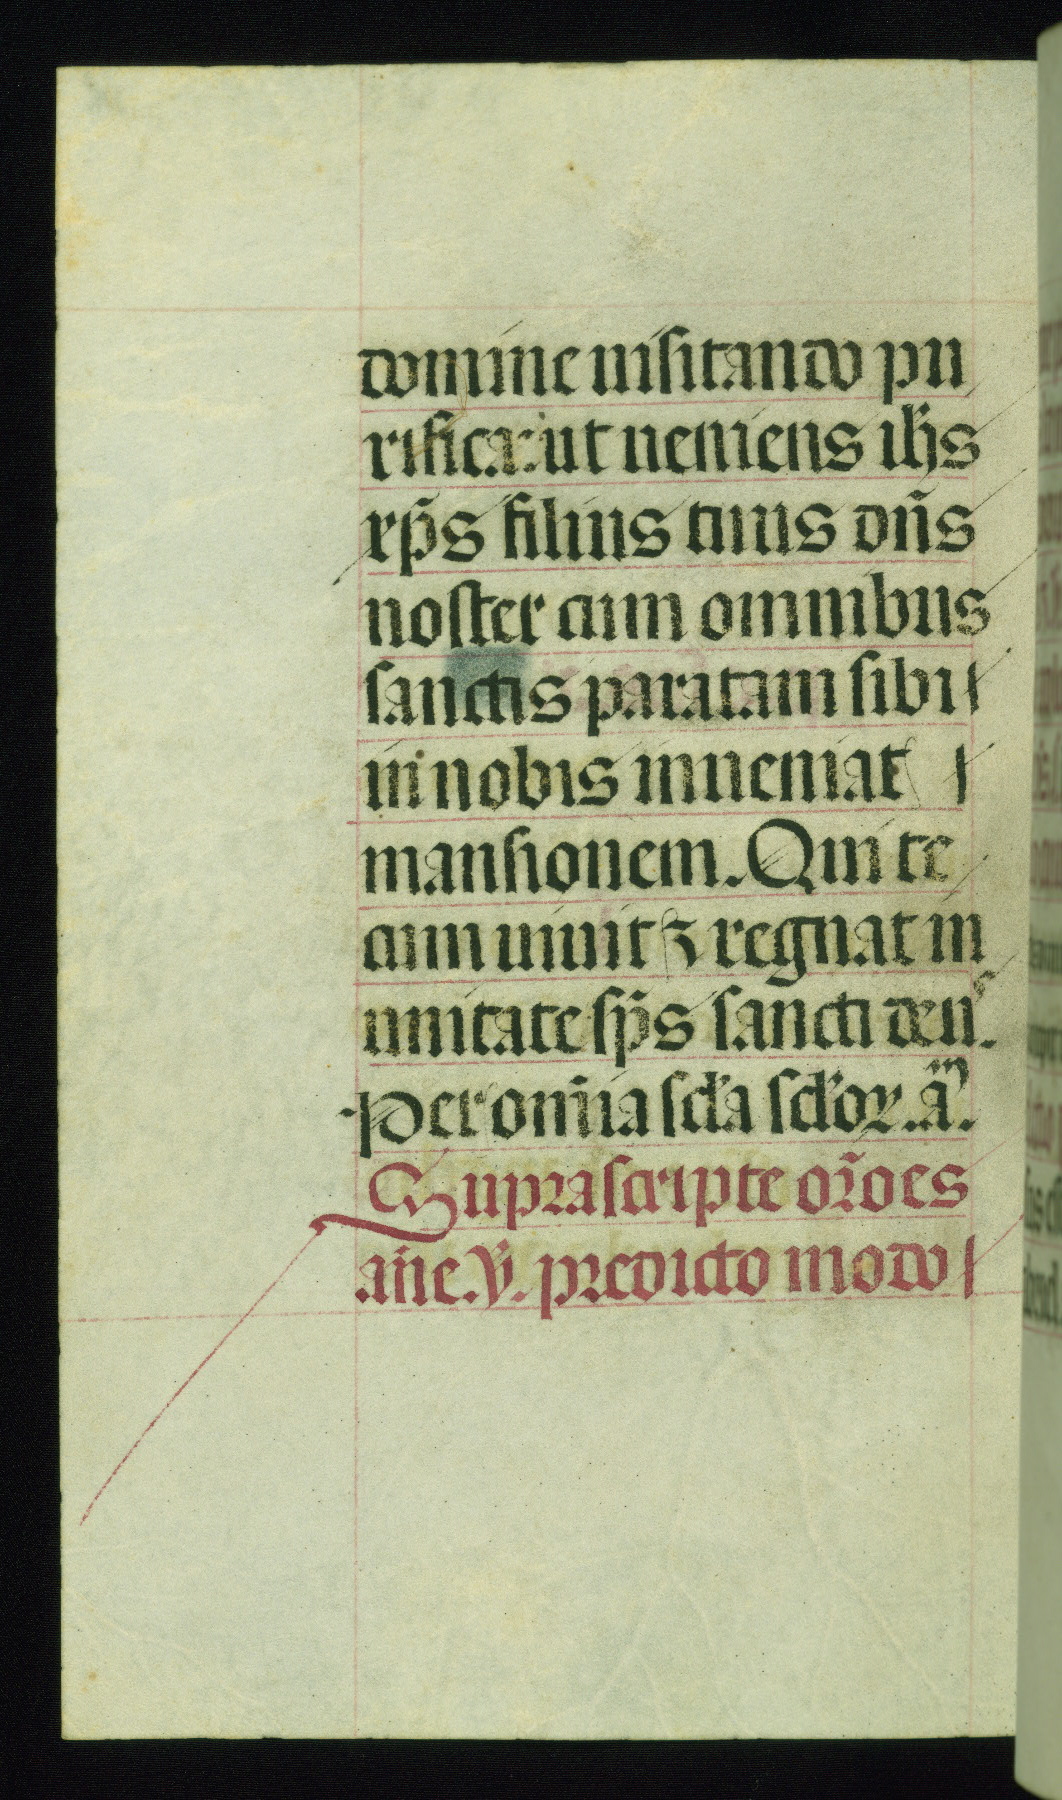 domine uisitando pu
rifica: ut ueniens ihs̄
xp̄s filius tuus dn̄s
noster cum omnibus
sanctis paratam sibi
in nobis inueniat
mansionem. Qui te
cum uiuit ⁊ regnat in
unitate sp̄s sancti deuˢ.
Per om̄ia scl̄a scl̄oꝝ. am̄.
Suprascripte or̄oes
an̄e. ꝟ. predicto modo